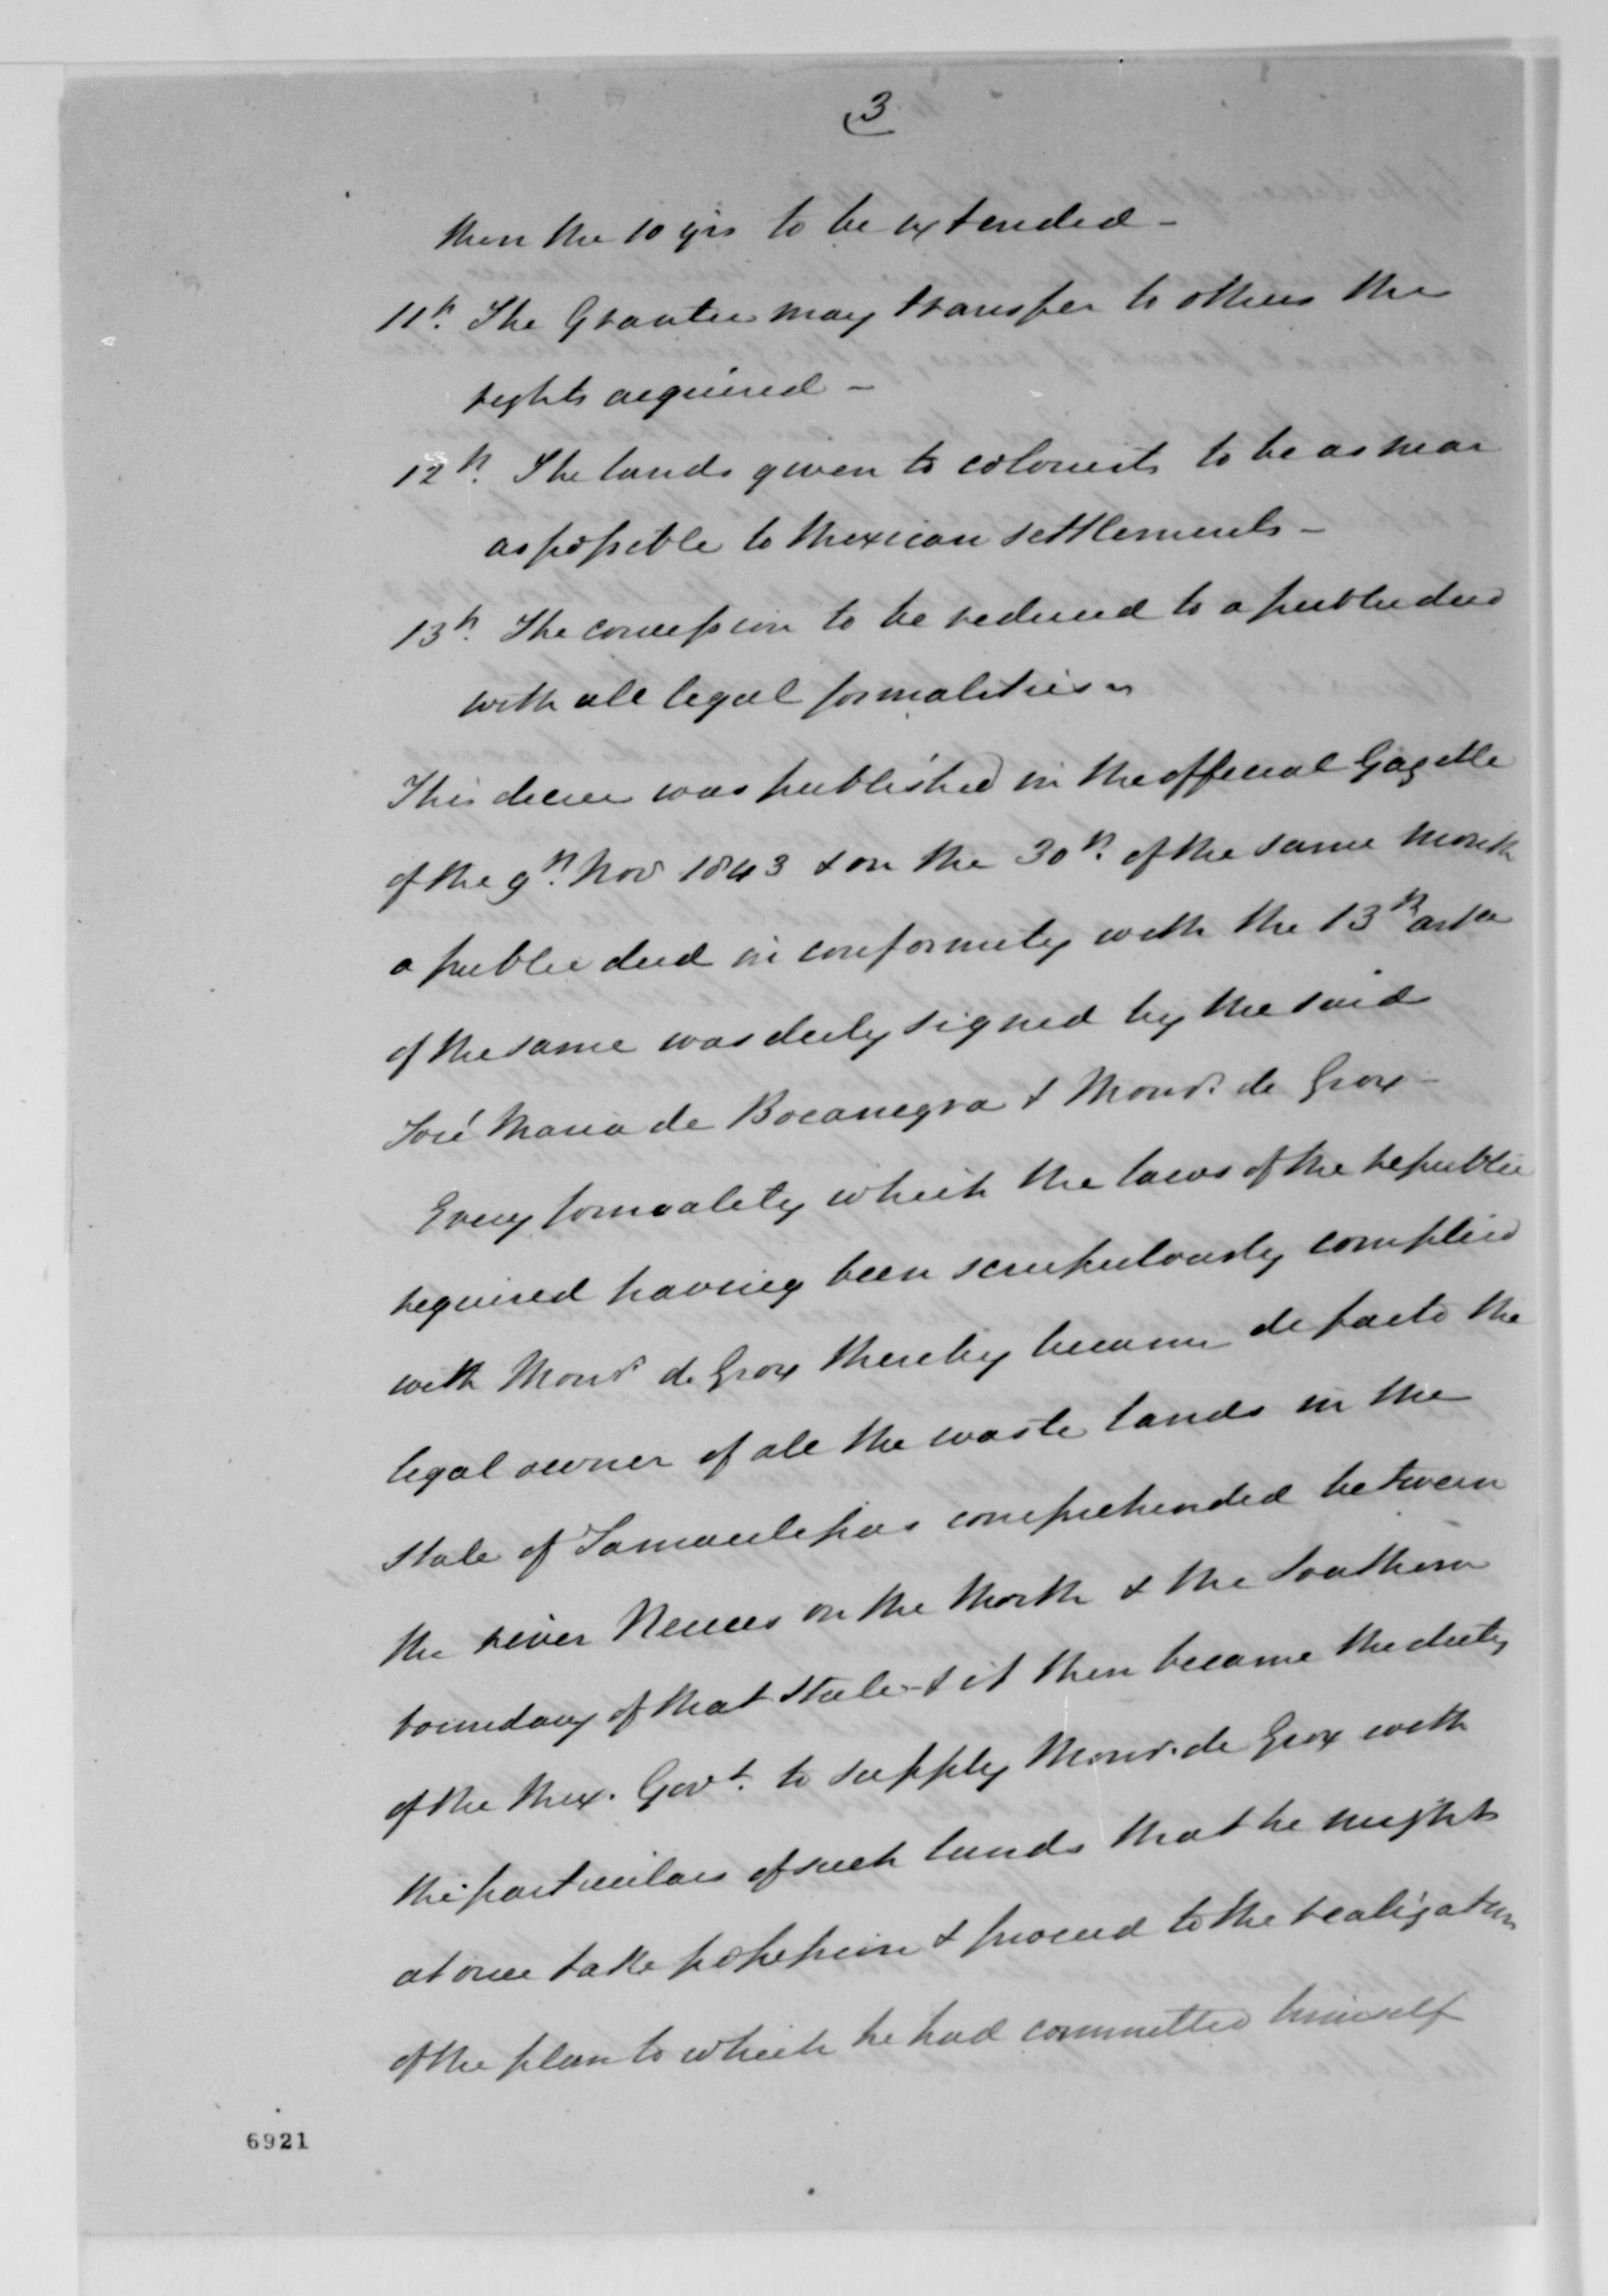 3
then the 10 yrs to be extended -
11th. The Grantee may transfer to others the
rights acquired -
12th. The lands given to colonists to be as near
as possible to Mexican settlements -
13th. The concession to be reduced to a public deed
with all legal formalities
This decree was published in the official Gazette
of the 9th. Nov 1843 & on the 30th. of the same month
a public deed in conformity with the 13th
of the same was duly signed by the said
José Maria de Bocanegra & Monsr. de Grox -
Every formality which the laws of the republic
required having been scrupulously complied
with Monsr de Grox thereby became de facto the
legal owner of all the waste lands in the
State of Tamaulipas comprehended between
the river Neuces on the North & the Southern
boundary of that State - & it then became the duty
of the Mex. Govt. to supply Monsr. de Grox with
the particulars of such lands that he might
at once take possession & proceed to the realization
of the plan to which he had committed himself
6921